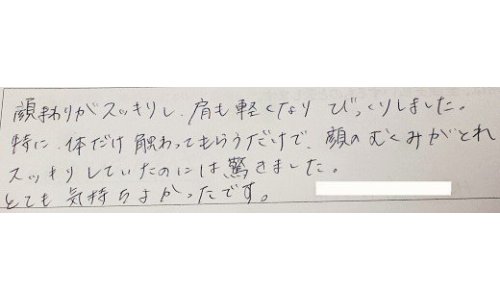 顔まわりがスッキリし、肩も軽くなり びっくりしました。
特に、体だけ触わってもらうだけで、顔のむくみがとれ
スッキリしていたのには驚きました。
とても気持ちよかったです。